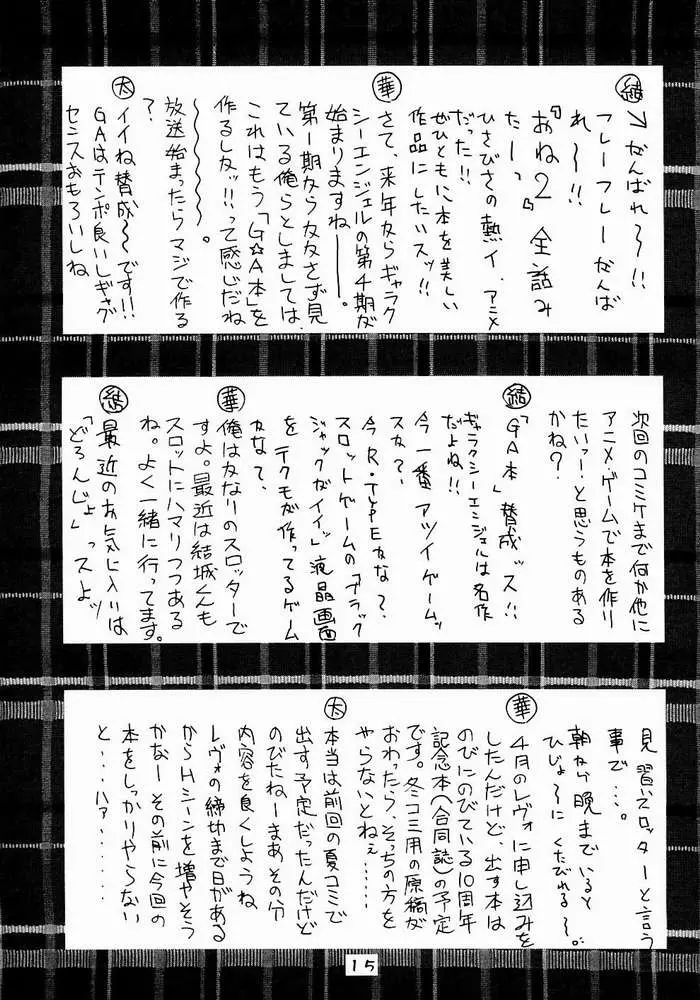 結
→がんばれ〜!!
フレーフレーがんば
れ〜!!
『おね2』全話み
たーっ
ひさびさの熱イ、アニメ
だった!!
ぜひともに本を美しい
作品にしたいスッ!!
華
さて、来年からギャラク
シーエンジェルの第4期が
始まりますねー。
第1期からかかさず見
ている俺らとしましては、
これはもう「G☆A本」を
作るしか!!って感じだね
〜〜〜〜。
放送始まったらマジで作る
?
太
イイね賛成〜です!!
GAはテンポ良いしギャグ
センスおもろいしね
次回のコミケまで何か他に
アニメ・ゲームで本を作り
たいっー!と思うものある
かね?
結
「GA本」賛成ッス!!
ギャラクシーエンジェルは名作
だよね!!
今一番アツイゲームッ
スか?、
今R・TYPEかな?、
スロットゲームの「ブラック
ジャックがイイッ」液晶画面
をテクモが作ってるゲーム
かな?、
華
俺はかなりのスロッターで
すよ。最近は結城くんも
スロットにハマりつつある
ね。よく一緒に行ってます。
結
最近のお気に入りは
「どろんじょ」っスよッ
見習いスロッターと言う
事で…。
朝から晩までいると
ひじょ〜にくたびれる〜。
華
4月のレヴォに申し込みを
したんだけど、出す本は
のびにのびている10周年
記念本(合同誌)の予定
です。冬コミ用の原稿が
おわったら、そっちの方を
やらないとねぇ……
太
本当は前回の夏コミで
出す予定だったんだけど
のびたねーまあその分
内容を良くしようね
レヴォの締切まで日がある
からHシーンを増やそう
かなーその前に今回の
本をしっかりやらない
と…ハァ……
15